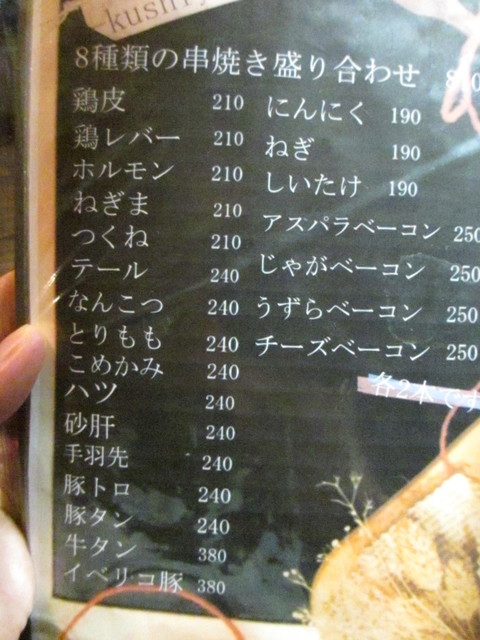 8種類の串焼き盛り合わせ
鶏皮 210
鶏レバー 210
ホルモン 210
ねぎま 210
つくね 210
テール 240
なんこつ 240
とりもも 240
こめかみ 240
ハツ 240
砂肝 240
手羽先 240
豚トロ 240
豚タン 240
牛タン 380
イベリコ豚 380
にんにく 190
ねぎ 190
しいたけ 190
アスパラベーコン 250
じゃがベーコン 250
うずらベーコン 250
チーズベーコン 250
各2本です